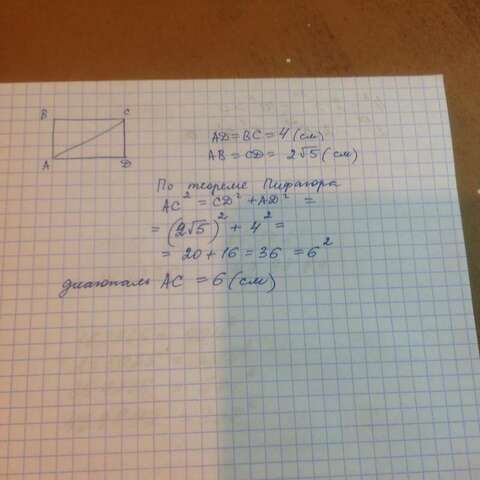 B C
A D
AD = BC = 4 (см)
AB = CD = 2√5 (см)
По теореме Пифагора
AC² = CD² + AD² =
= (2√5)² + 4² =
= 20 + 16 = 36 = 6²
диагональ AC = 6 (см)